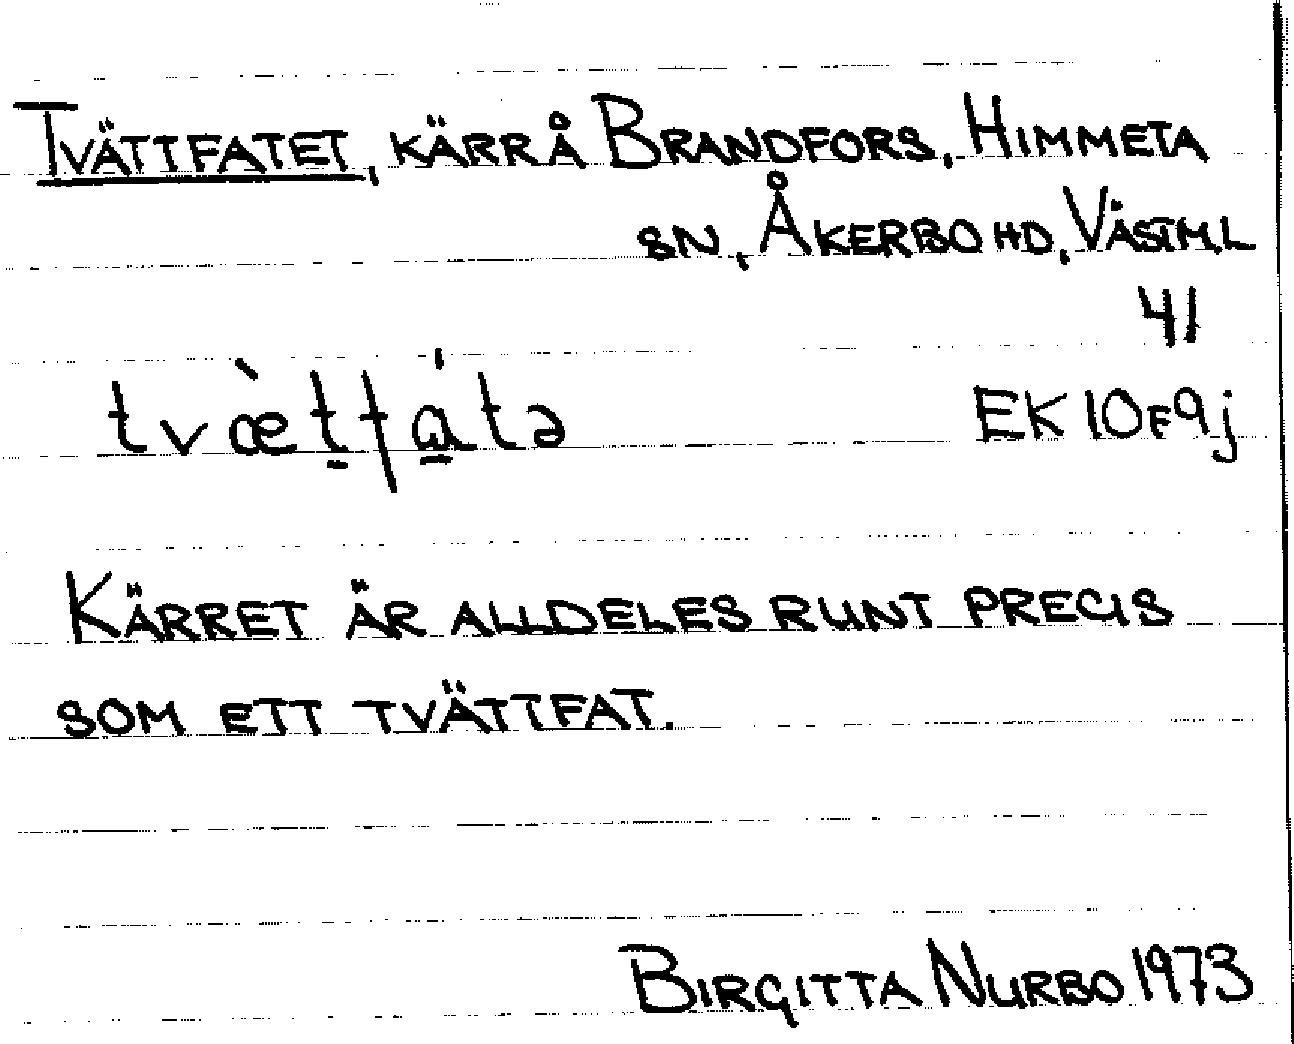 TVÄTTFATET, KÄRR Å BRANDFORS, HIMMETA
SN, ÅKERBO HD, VÄSTML
41
tvæ̀t̠fá̠tə
EK 10F9j
KÄRRET ÄR ALLDELES RUNT PRECIS
SOM ETT TVÄTTFAT.
BIRGITTA NURBO 1973